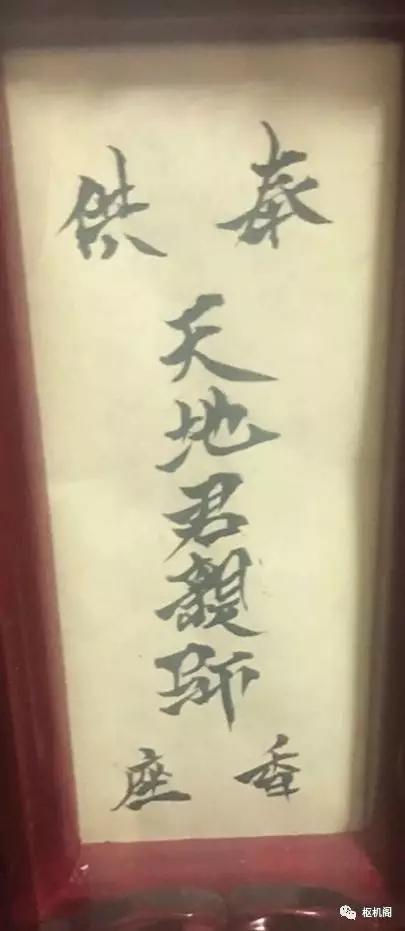 奉供
天地君親師
香座
枢机阁